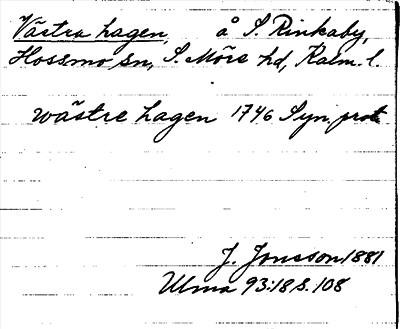 Västra hagen, å S. Rinkaby,
Hossmo sn, S. Möre hd, Kalm. l.
wästre hagen 1746 Syn. prot.
J. Jonsson 1881
Ulma 93:18, s. 108